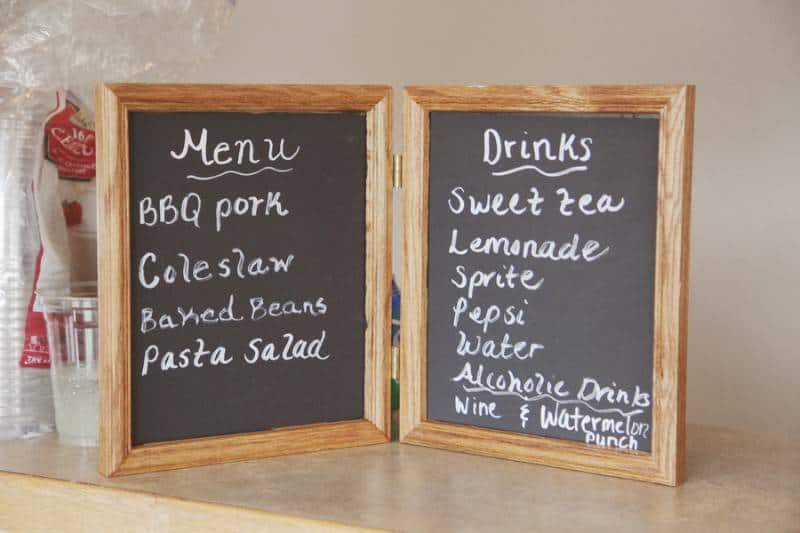 Menu
BBQ pork
Coleslaw
Baked Beans
Pasta Salad
Drinks
Sweet tea
Lemonade
Sprite
Pepsi
Water
Alcoholic Drinks
Wine & Watermelon
Punch